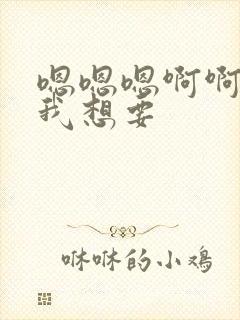 嗯嗯嗯啊啊
我想要
咻咻的小鸡